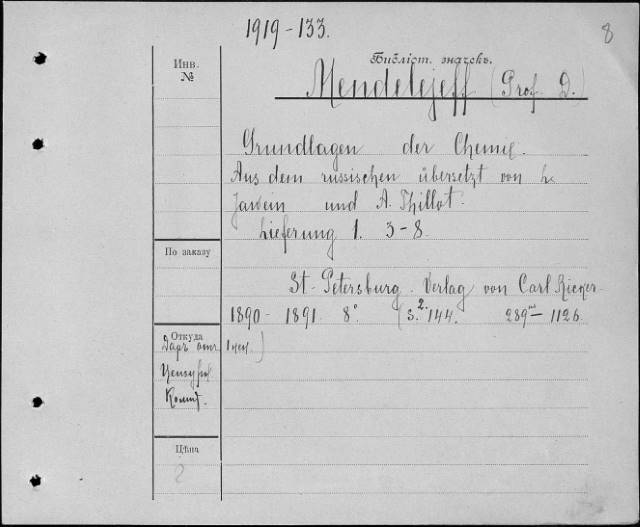 1919-133.
8
Инв.
№
Библіот. значекъ.
Mendelejeff (Prof. D.)
Grundlagen der Chemie.
Aus dem russischen übersetzt von L.
Jawein und A. Thillot.
Lieferung 1. 3-8.
По заказу
St-Petersburg. Verlag von Carl Ricker.
1890- 1891. 8° (S. 2. 144. 289 — 1126.
Откуда
Даръ 1 нем.)
Цензур
Комит.
Цѣна